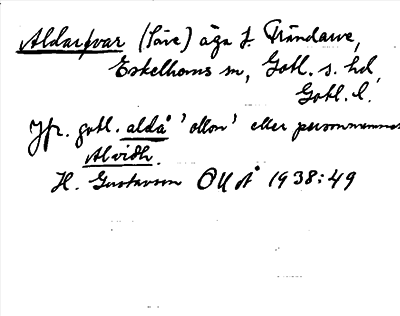 Aldarfvar (Säve) äga f. Frändarve,
Eskelhems sn, Gotl. s. hd,
Gotl. l.
Jfr. gotl. aldå 'ollon' eller personnamnet
Alvidh.
H. Gustavson OUÅ 1938:49